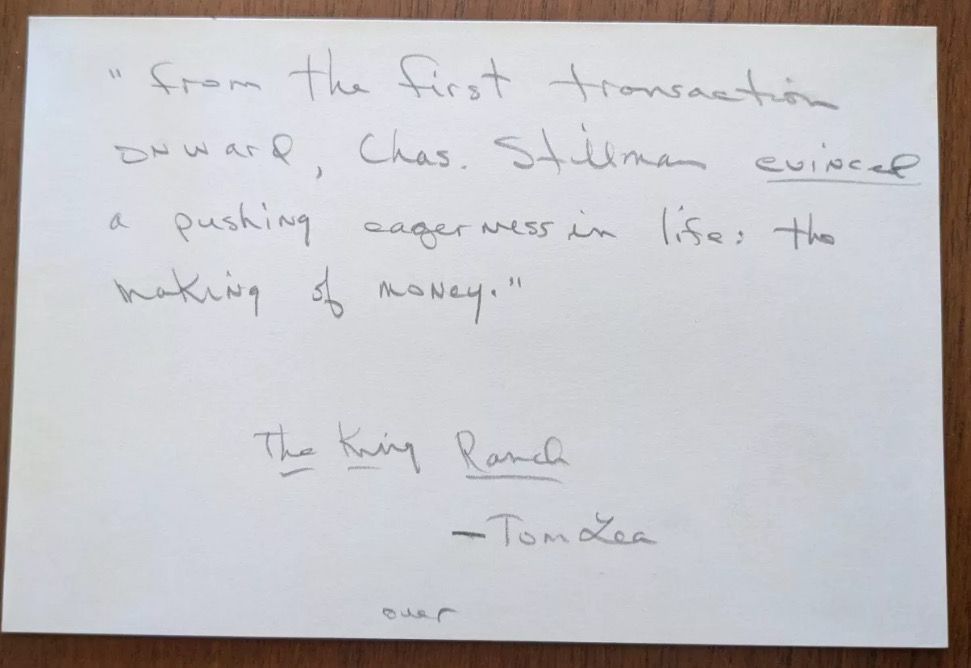 " from the first transaction
onward, Chas. Stillman evinced
a pushing eagerness in life: the
making of money."
The King Ranch
— Tom Lea
over